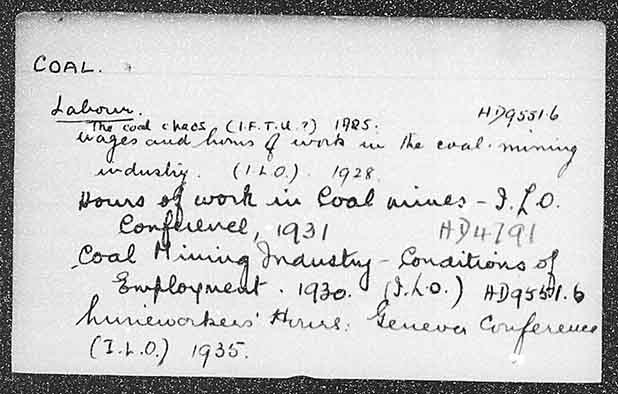 COAL.
Labour.
The coal chaos (I.F.T.U.?) 1925. HD9551.6
Wages and hours of work in the coal-mining
industry. (I.L.O.). 1928.
Hours of work in Coal mines - I.L.O.
Conference, 1931 HD4791
Coal Mining Industry - Conditions of
Employment. 1930. (I.L.O.) HD9551.6
Mineworkers' Hours: Geneva Conference
(I.L.O.) 1935.